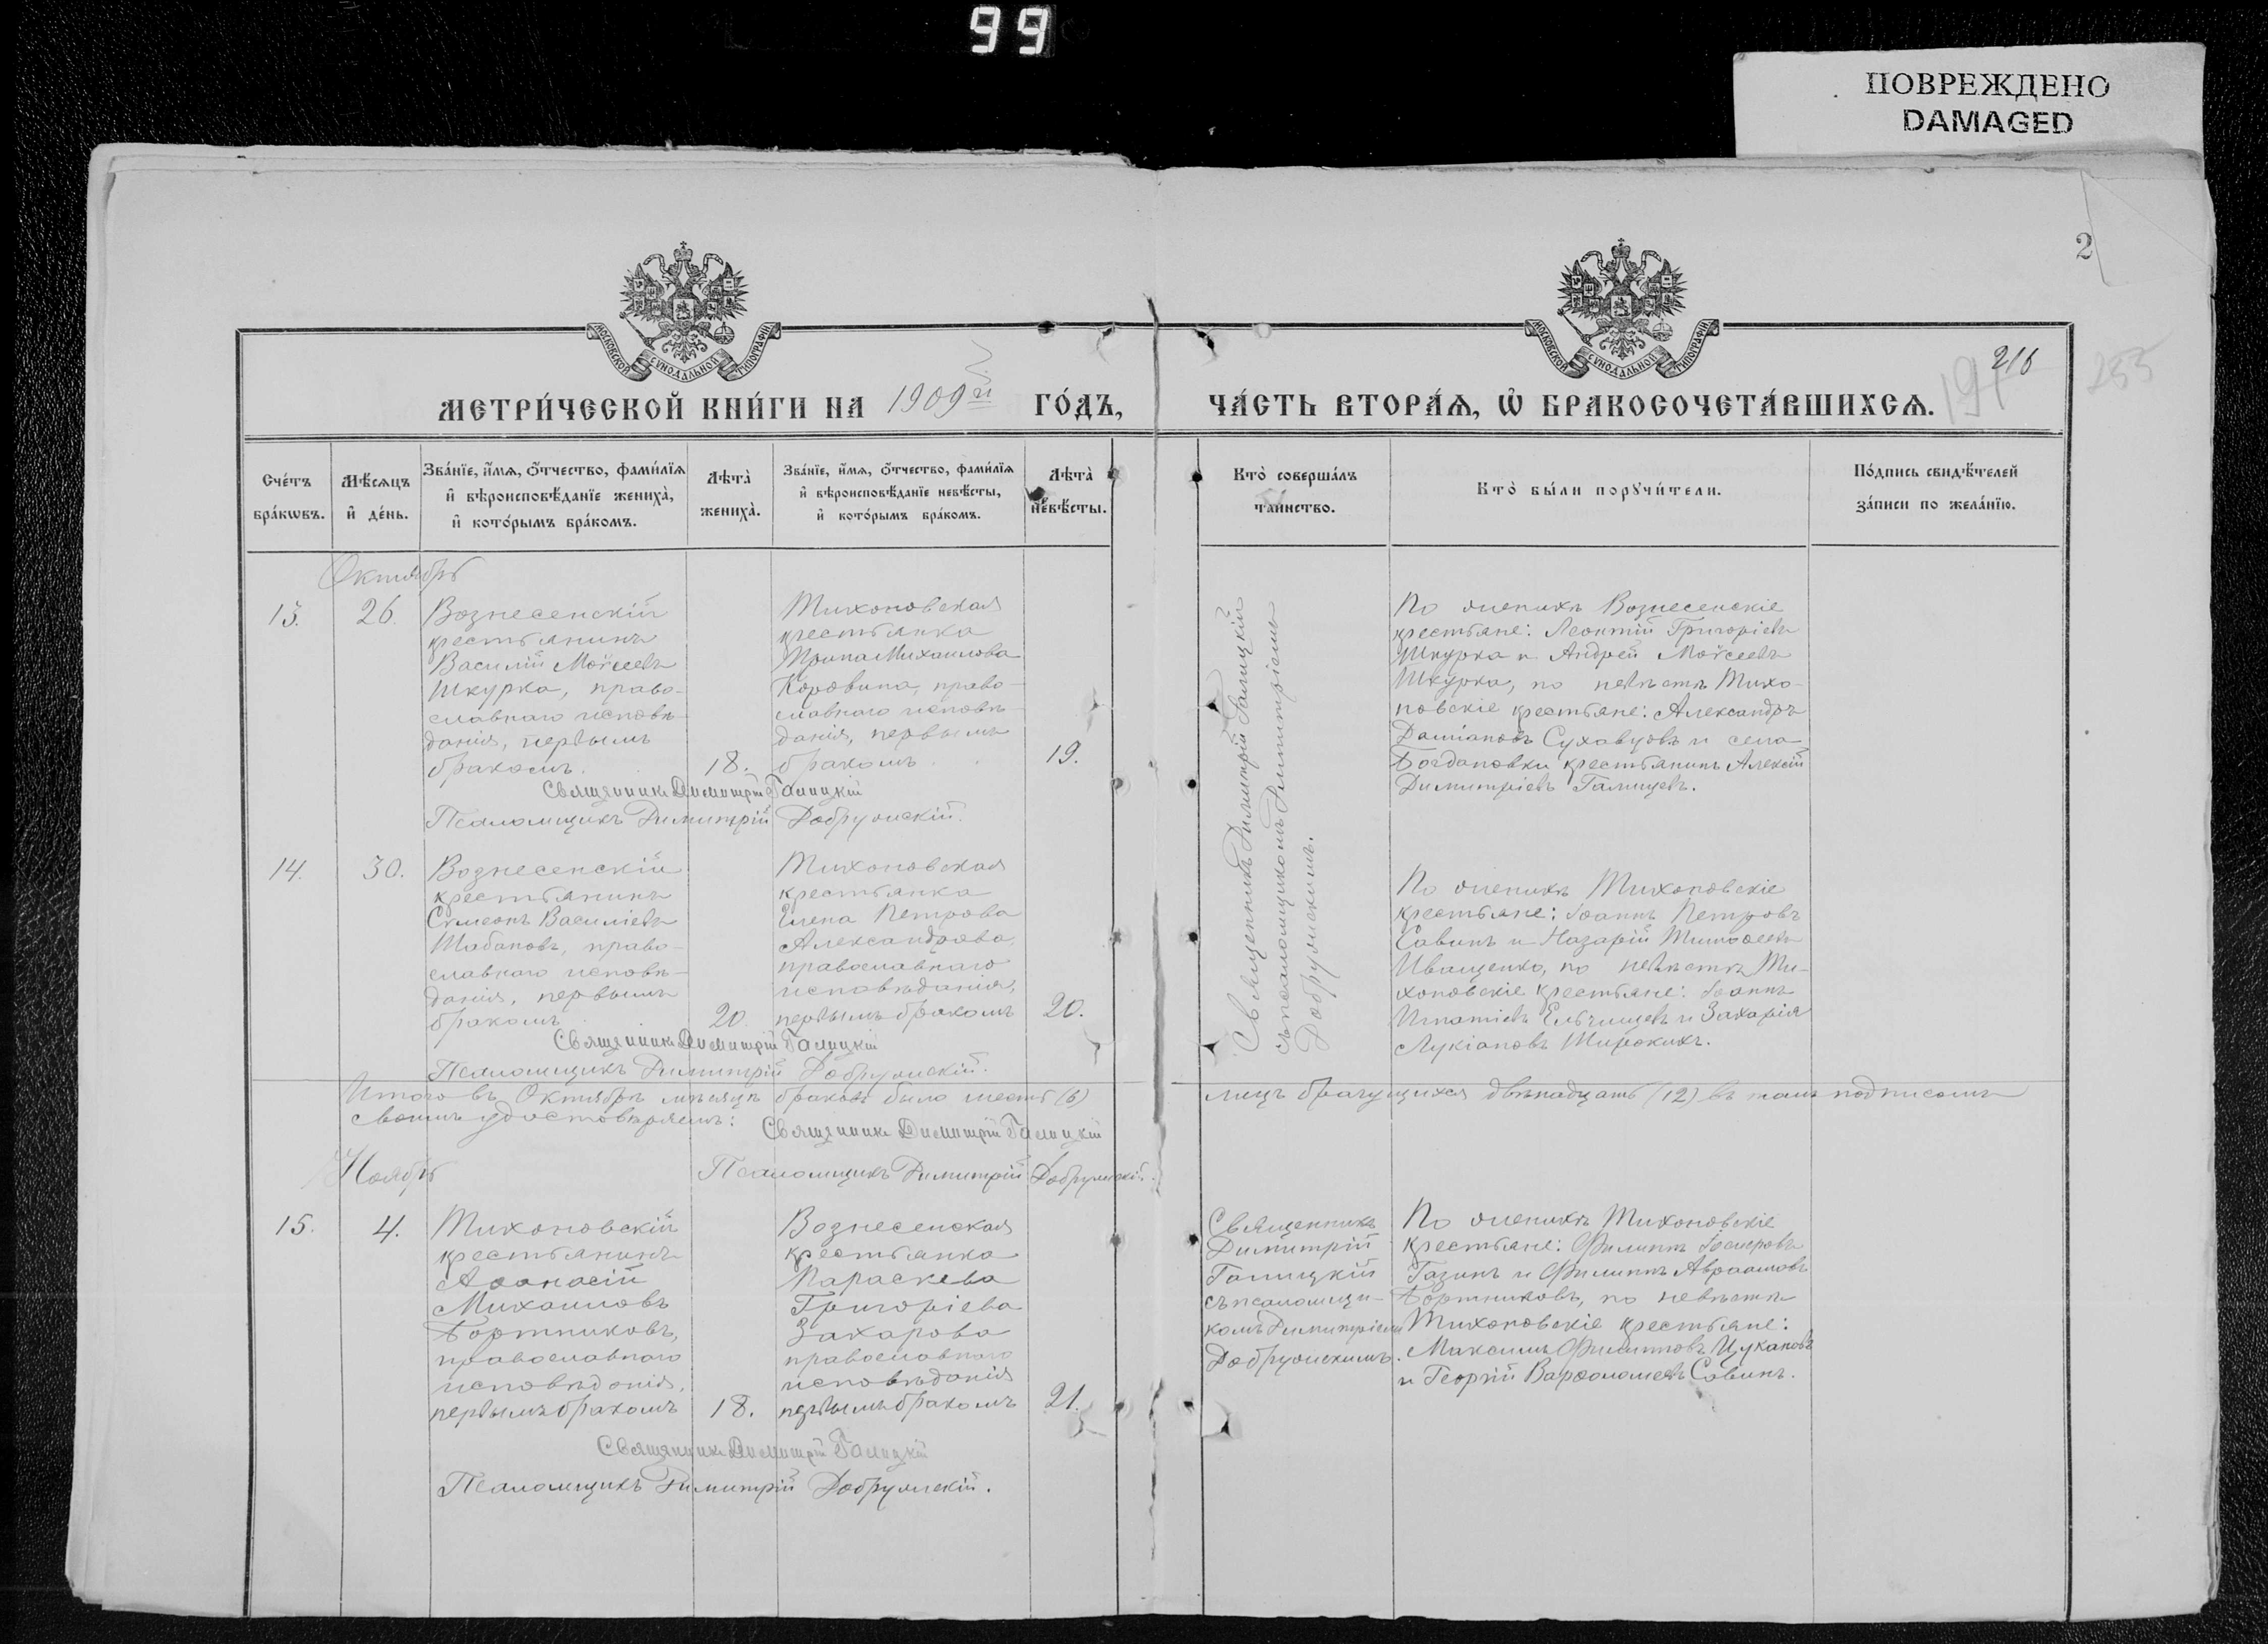 99
ПОВРЕЖДЕНО
DAMAGED
2
МОСКОВСКОЙ СѴНОДАЛЬНОЙ ТИПОГРАФІИ
МОСКОВСКОЙ СѴНОДАЛЬНОЙ ТИПОГРАФІИ
216
191
255
МЕТРИ́ЧЕСКОЙ КНИ́ГИ НА 1909й ГО́ДЪ,
ЧА́СТЬ ВТОРА́Ѧ, Ѡ҆ БРАКОСОЧЕТА́ВШИХСѦ.
Сче́тъ
бра́кѡвъ.
Мѣ́сѧцъ
и҆ де́нь.
Зва́нїе, и҆́мѧ, ѻ҆́тчество, фами́лїѧ
и҆ вѣроисповѣ́данїе жениха̀,
и҆ кото́рымъ бра́комъ.
Лѣта̀
жениха̀.
Зва́нїе, и҆́мѧ, ѻ҆́тчество, фами́лїѧ
и҆ вѣроисповѣ́данїе невѣ́сты,
и҆ кото́рымъ бра́комъ.
Лѣта̀
невѣ́сты.
Кто̀ соверша́лъ
та́инство.
Кто̀ бы́ли порꙋчи́тели.
По́дпись свидѣ́телей
за́писи по жела́нїю.
Октябрь
13.
26.
Вознесенскій
крестьянинъ
Василій Моѵсеевъ
Шкурка, право-
славнаго исповѣ-
данія, первымъ
бракомъ.
18.
Тихоновская
крестьянка
Ирина Михаилова
Коровина, право-
славнаго исповѣ-
данія, первымъ
бракомъ.
19.
Священникъ Димитрій Галицкій
Псаломщикъ Димитрій Добрумскій.
Священникъ Димитрій Галицкій
съ псаломщикомъ Димитріемъ
Добрумскимъ.
По женихѣ Вознесенскіе
крестьяне: Леонтій Григоріевъ
Шкурка и Андрей Моѵсеевъ
Шкурка, по невѣстѣ Тихо-
новскіе крестьяне: Александръ
Даміановъ Сухавцовъ и села
Богдановки крестьянинъ Алексій
Димитріевъ Галищевъ.
14.
30.
Вознесенскій
крестьянинъ
Сѵмеонъ Василіевъ
Шабановъ, право-
славнаго исповѣ-
данія, первымъ
бракомъ
20
Тихоновская
крестьянка
Елена Петрова
Александрова,
православнаго
исповѣданія,
первымъ бракомъ
20.
Священникъ Димитрій Галицкій
Псаломщикъ Димитрій Добрумскій.
По женихѣ Тихоновскіе
крестьяне: Іоаннъ Петровъ
Савинъ и Назарій Тимоѳеевъ
Иващенко, по невѣстѣ Ти-
хоновскіе крестьяне: Іоаннъ
Игнатіевъ Ельчищевъ и Захарія
Лукіановъ Широкихъ.
Итого въ Октябрѣ мѣсяцѣ браковъ было шесть (6) лицъ брачущихся двѣнадцать (12) въ томъ подписомъ
своимъ удостовѣряемъ:
Священникъ Димитрій Галицкій
Псаломщикъ Димитрій Добрумскій.
Ноябрь
15.
4.
Тихоновскій
крестьянинъ
Аѳанасій
Михаиловъ
Бортниковъ,
православнаго
исповѣданія,
первымъ бракомъ
18.
Вознесенская
крестьянка
Параскева
Григоріева
Захарова
православнаго
исповѣданія
первымъ бракомъ
21.
Священникъ
Димитрій
Галицкій
съ псаломщи-
комъ Димитріемъ
Добрумскимъ.
По женихѣ Тихоновскіе
крестьяне: Филиппъ Іосифовъ
Газинъ и Филиппъ Авраамовъ
Бортниковъ, по невѣстѣ
Тихоновскіе крестьяне:
Максимъ Филипповъ Цукановъ
и Георгій Варѳоломеевъ Савинъ.
Священникъ Димитрій Галицкій
Псаломщикъ Димитрій Добрумскій.